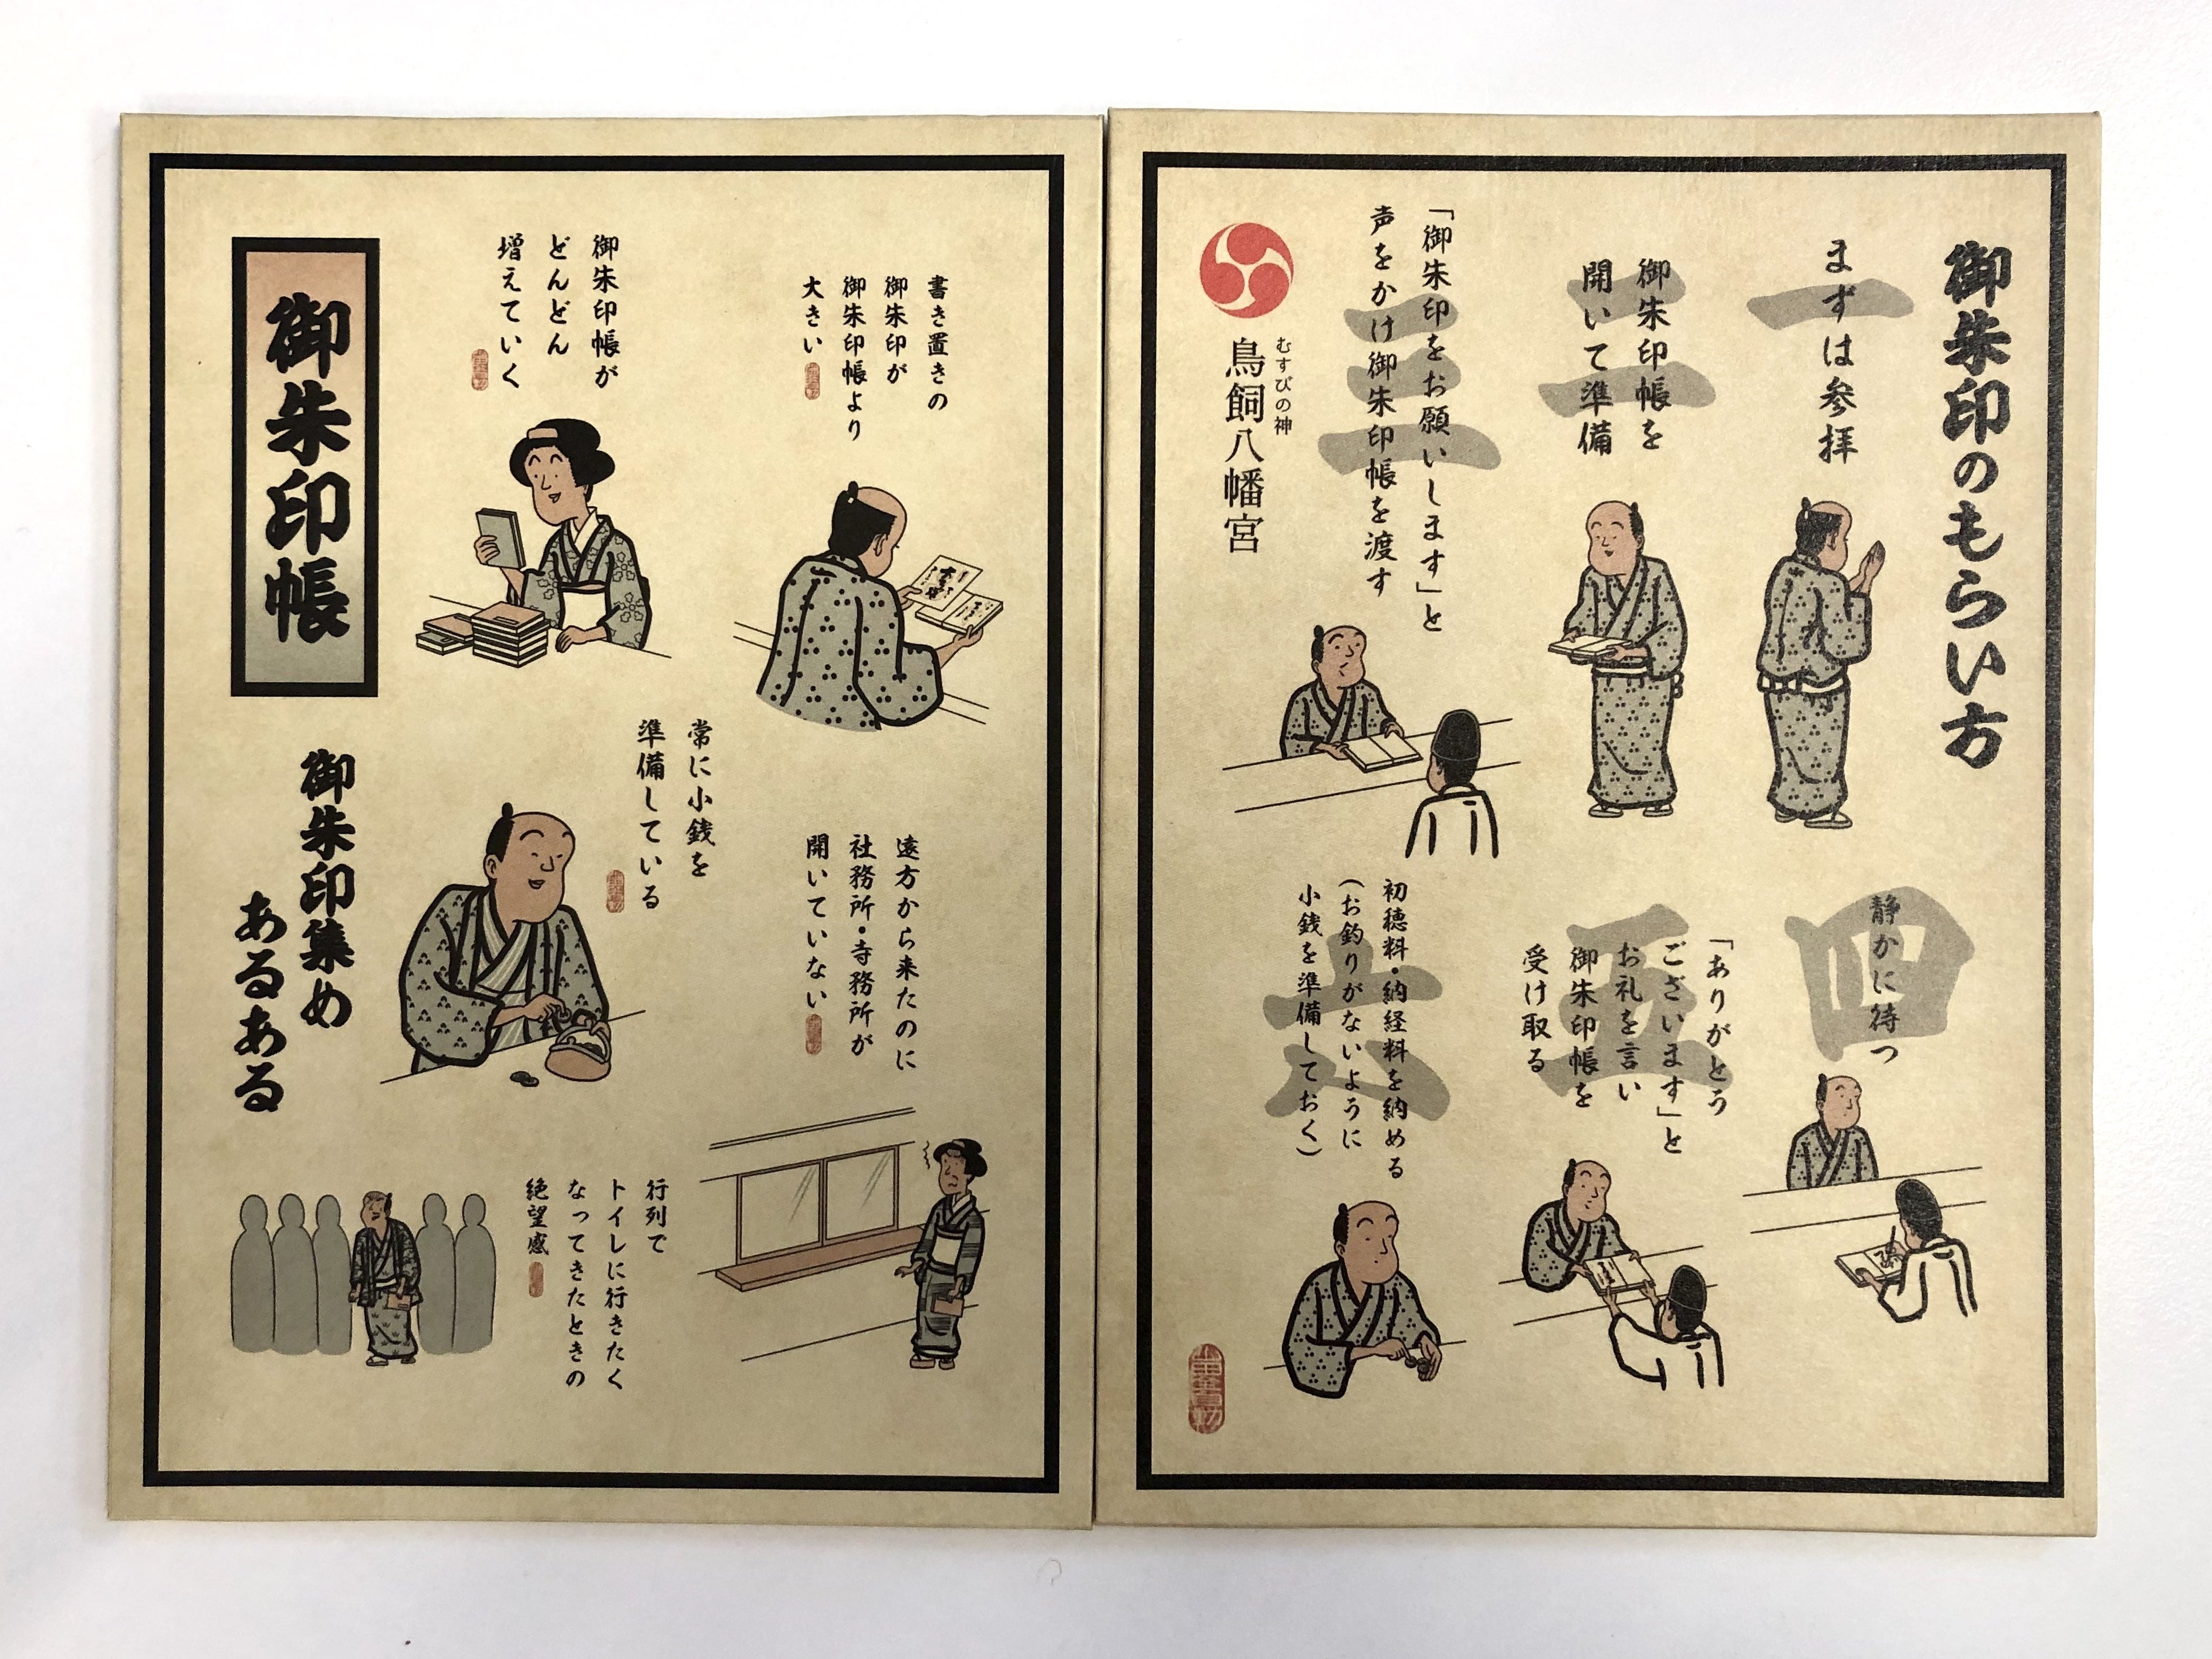 御朱印のもらい方
一
まずは参拝
二
御朱印帳を
開いて準備
三
「御朱印をお願いします」と
声をかけ御朱印帳を渡す
むすびの神
鳥飼八幡宮
四
静かに待つ
五
「ありがとう
ございます」と
お礼を言い
御朱印帳を
受け取る
六
初穂料・納経料を納める
(お釣りがないように
小銭を準備しておく)
書き置きの
御朱印が
御朱印帳より
大きい
御朱印帳が
どんどん
増えていく
御朱印帳
遠方から来たのに
社務所・寺務所が
開いていない
常に小銭を
準備している
御朱印集め
あるある
行列で
トイレに行きたく
なってきたときの
絶望感